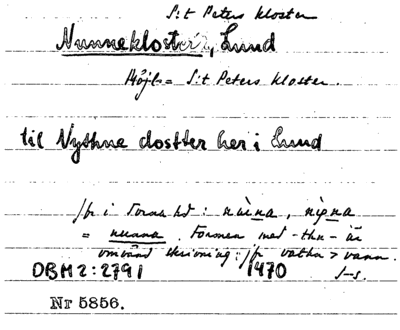 S:t Peters kloster
Nunnekloster, Lund
Höjl = S:t Peters kloster.
til Nythne closter her i Lund
jfr i Torna hd: nùna, nòna
= nunna. Formen med -thn- är
omvänd skrivning: jfr vathn > vann.
DBM 2:2791 1470 S-s.
Nr 5856.